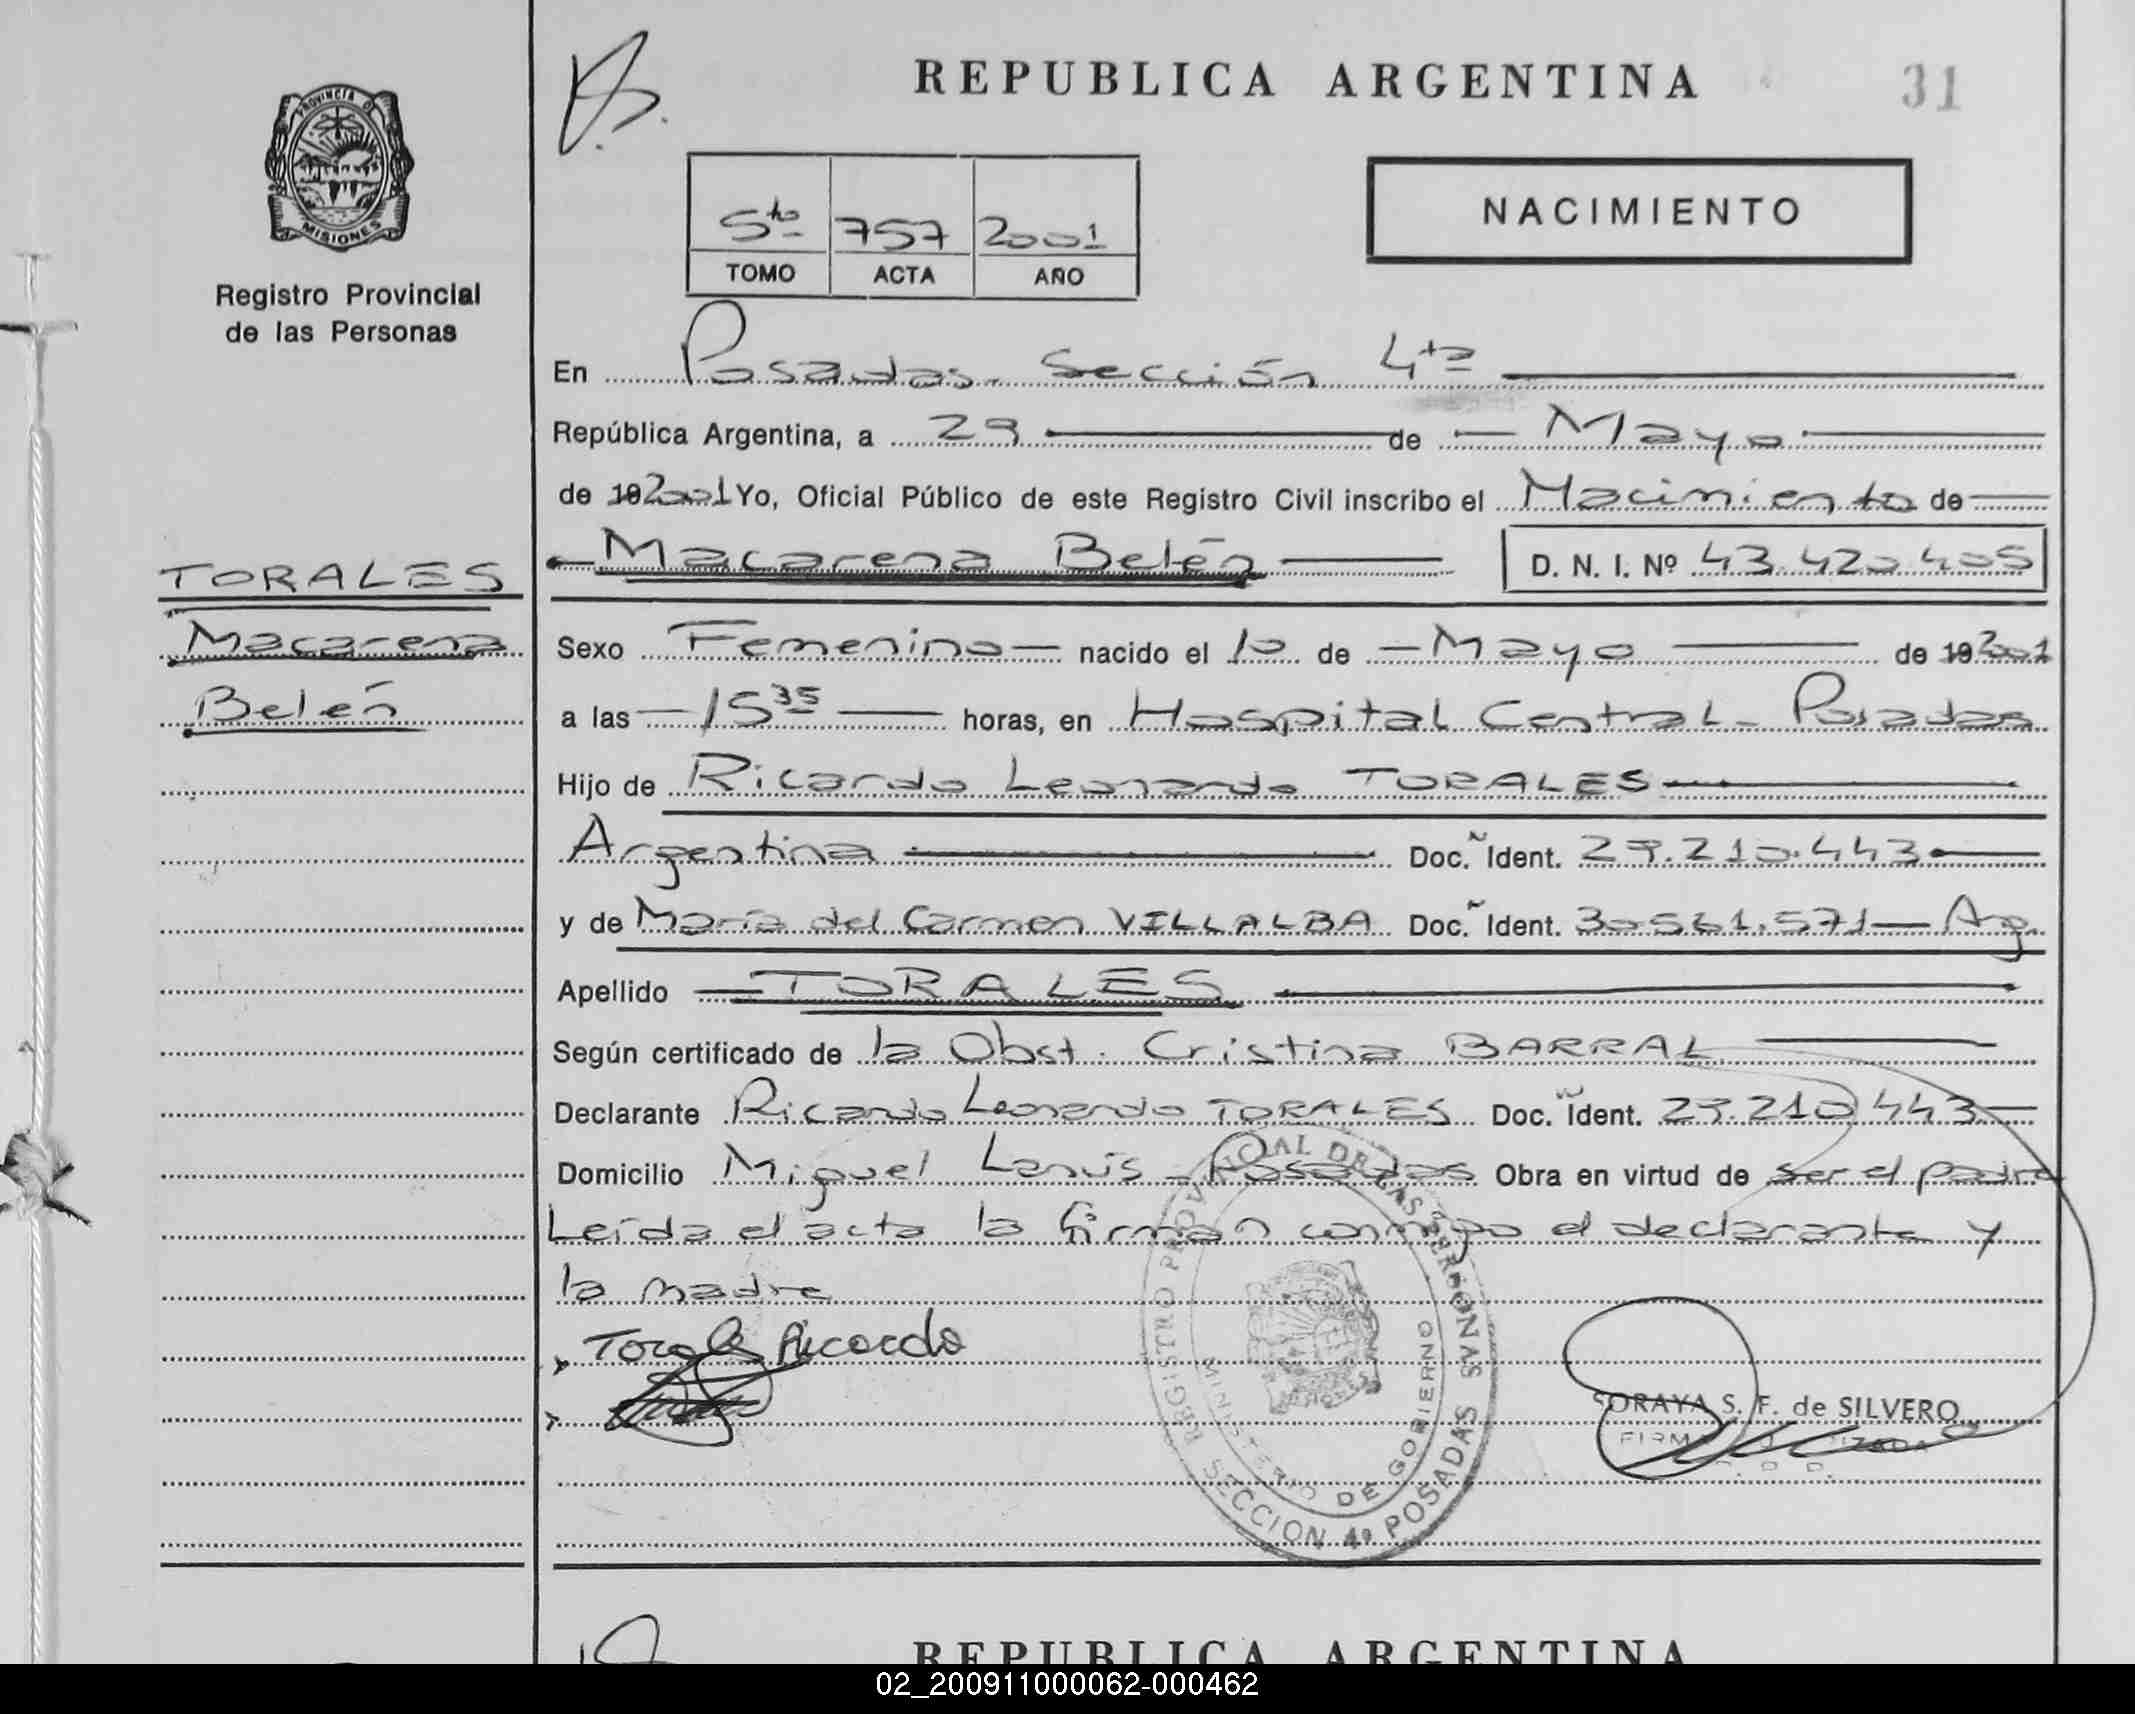 REPUBLICA ARGENTINA
31
PROVINCIA D
MISIONES
Registro Provincial
de las Personas
5to 757 2001
TOMO ACTA AÑO
NACIMIENTO
En Posadas. Sección 4ta
República Argentina, a 29 de Mayo
de 19 2001 Yo, Oficial Público de este Registro Civil inscribo el Nacimiento de
Macarena Belén D. N. I. Nº 43.420.405
TORALES
Macarena
Belén
Sexo Femenino nacido el 10 de Mayo de 19 2001
a las 15 35 horas, en Hospital Central - Posadas
Hijo de Ricardo Leonardo TORALES
Argentina Doc. Ident. 27.210.443
y de María del Carmen VILLALBA Doc. Ident. 30.561.571 Arg.
Apellido TORALES
Según certificado de la Obst. Cristina BARRAL
Declarante Ricardo Leonardo TORALES Doc. Ident. 27.210.443
Domicilio Miguel Lanús - Posadas Obra en virtud de ser el padre
Leída el acta la firman conmigo el declarante y
la madre
Torales Ricardo
REGISTRO PROVINCIAL DE LAS PERSONAS
MINISTERIO DE GOBIERNO
SECCION 4a POSADAS
SORAYA S. F. de SILVERO
REPUBLICA ARGENTINA
02_200911000062-000462